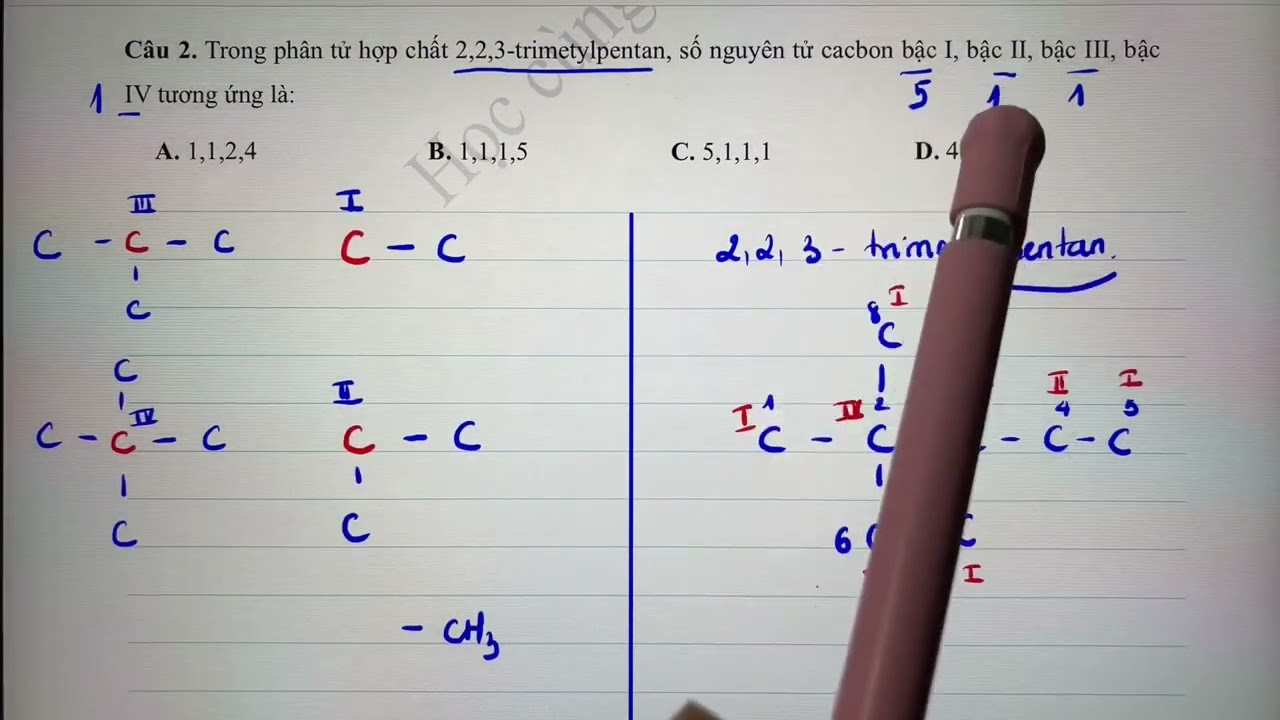 Học cùng
Câu 2. Trong phân tử hợp chất 2,2,3-trimetylpentan, số nguyên tử cacbon bậc I, bậc II, bậc III, bậc
5 1 1
1 IV tương ứng là:
A. 1,1,2,4 B. 1,1,1,5 C. 5,1,1,1 D. 4
III I
C - C - C C - C 2,2,3 - entan.
C
8 I
C
C
IV II I 1 IV 2 II 4 I 5
C - C - C C - C C - C - C - C
C C 6
I
- CH3